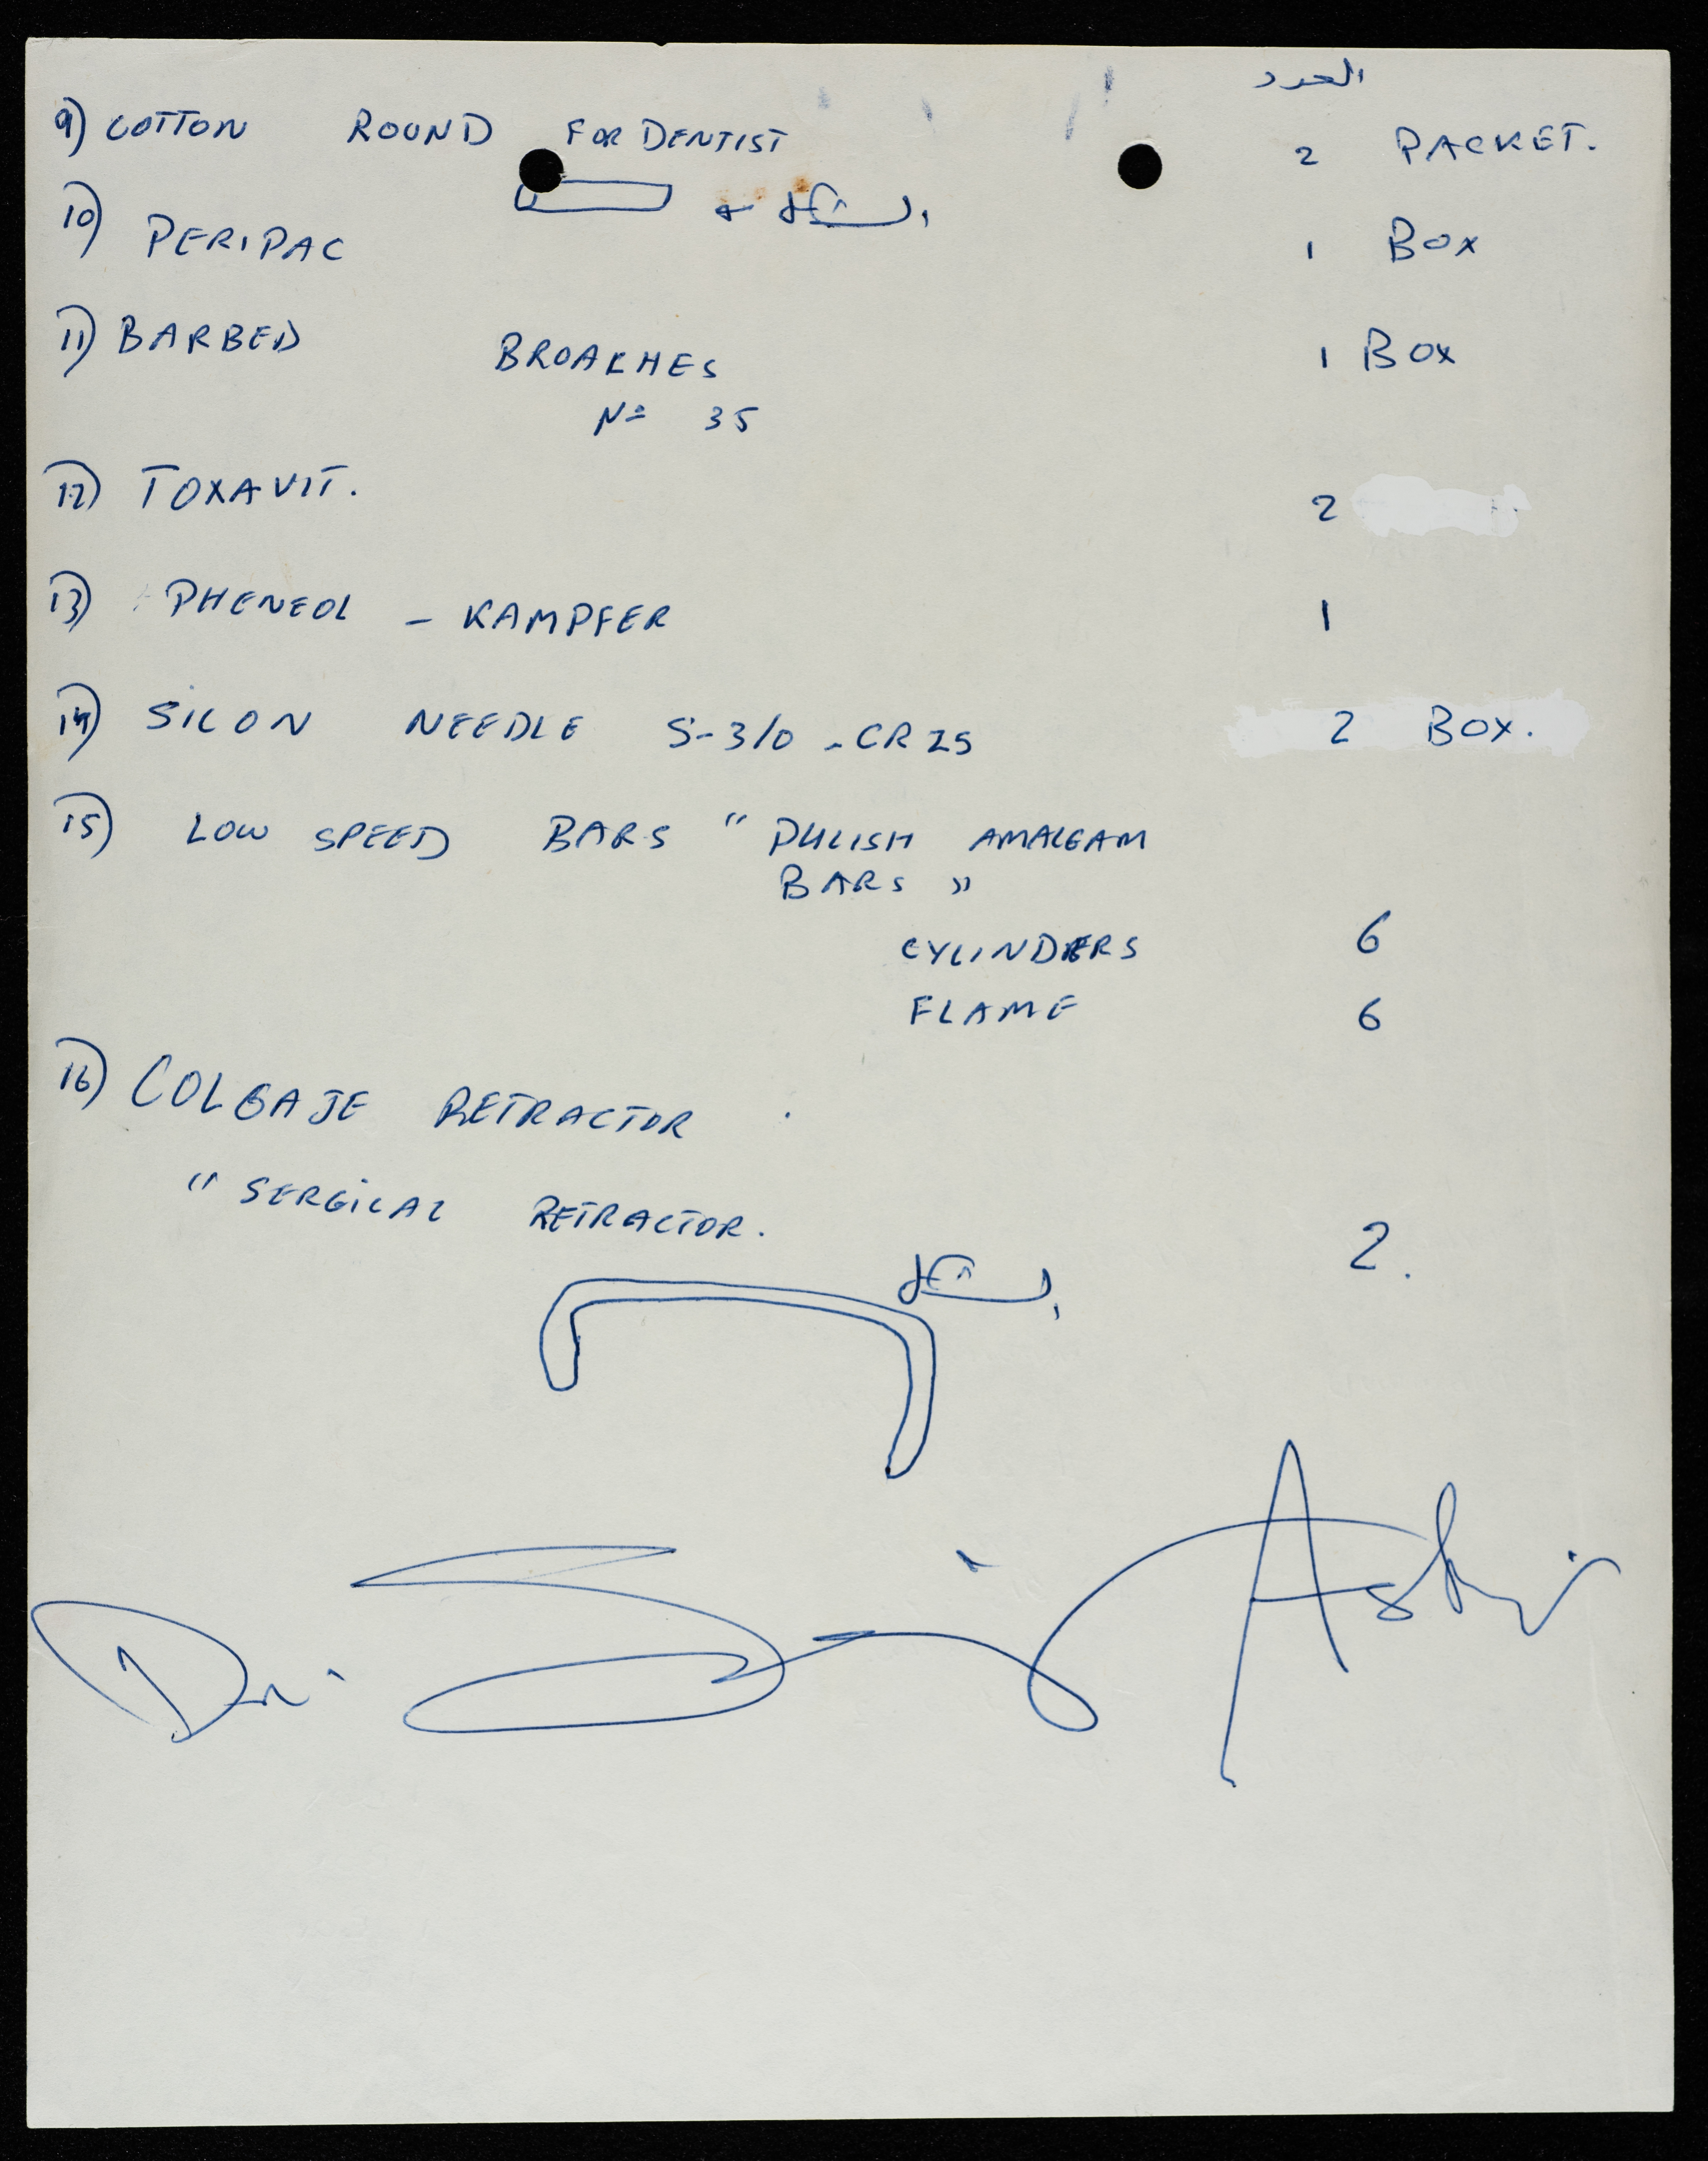 العدد
9) COTTON ROUND FOR DENTIST 2 PACKET.
الشكل
10) PERIPAC 1 BOX
11) BARBED BROAKHES 1 BOX
Nº 35
12) TOXAVIT. 2
13) PHENEOL - KAMPFER 1
14) SILON NEEDLE S-3/0 - CR25 2 BOX.
15) LOW SPEED BARS " PULISH AMALGAM
BARS "
CYLINDERS 6
FLAME 6
16) COLGAJE RETRACTOR
" SERGICAL RETRACTOR. 2.
الشكل
Dr.